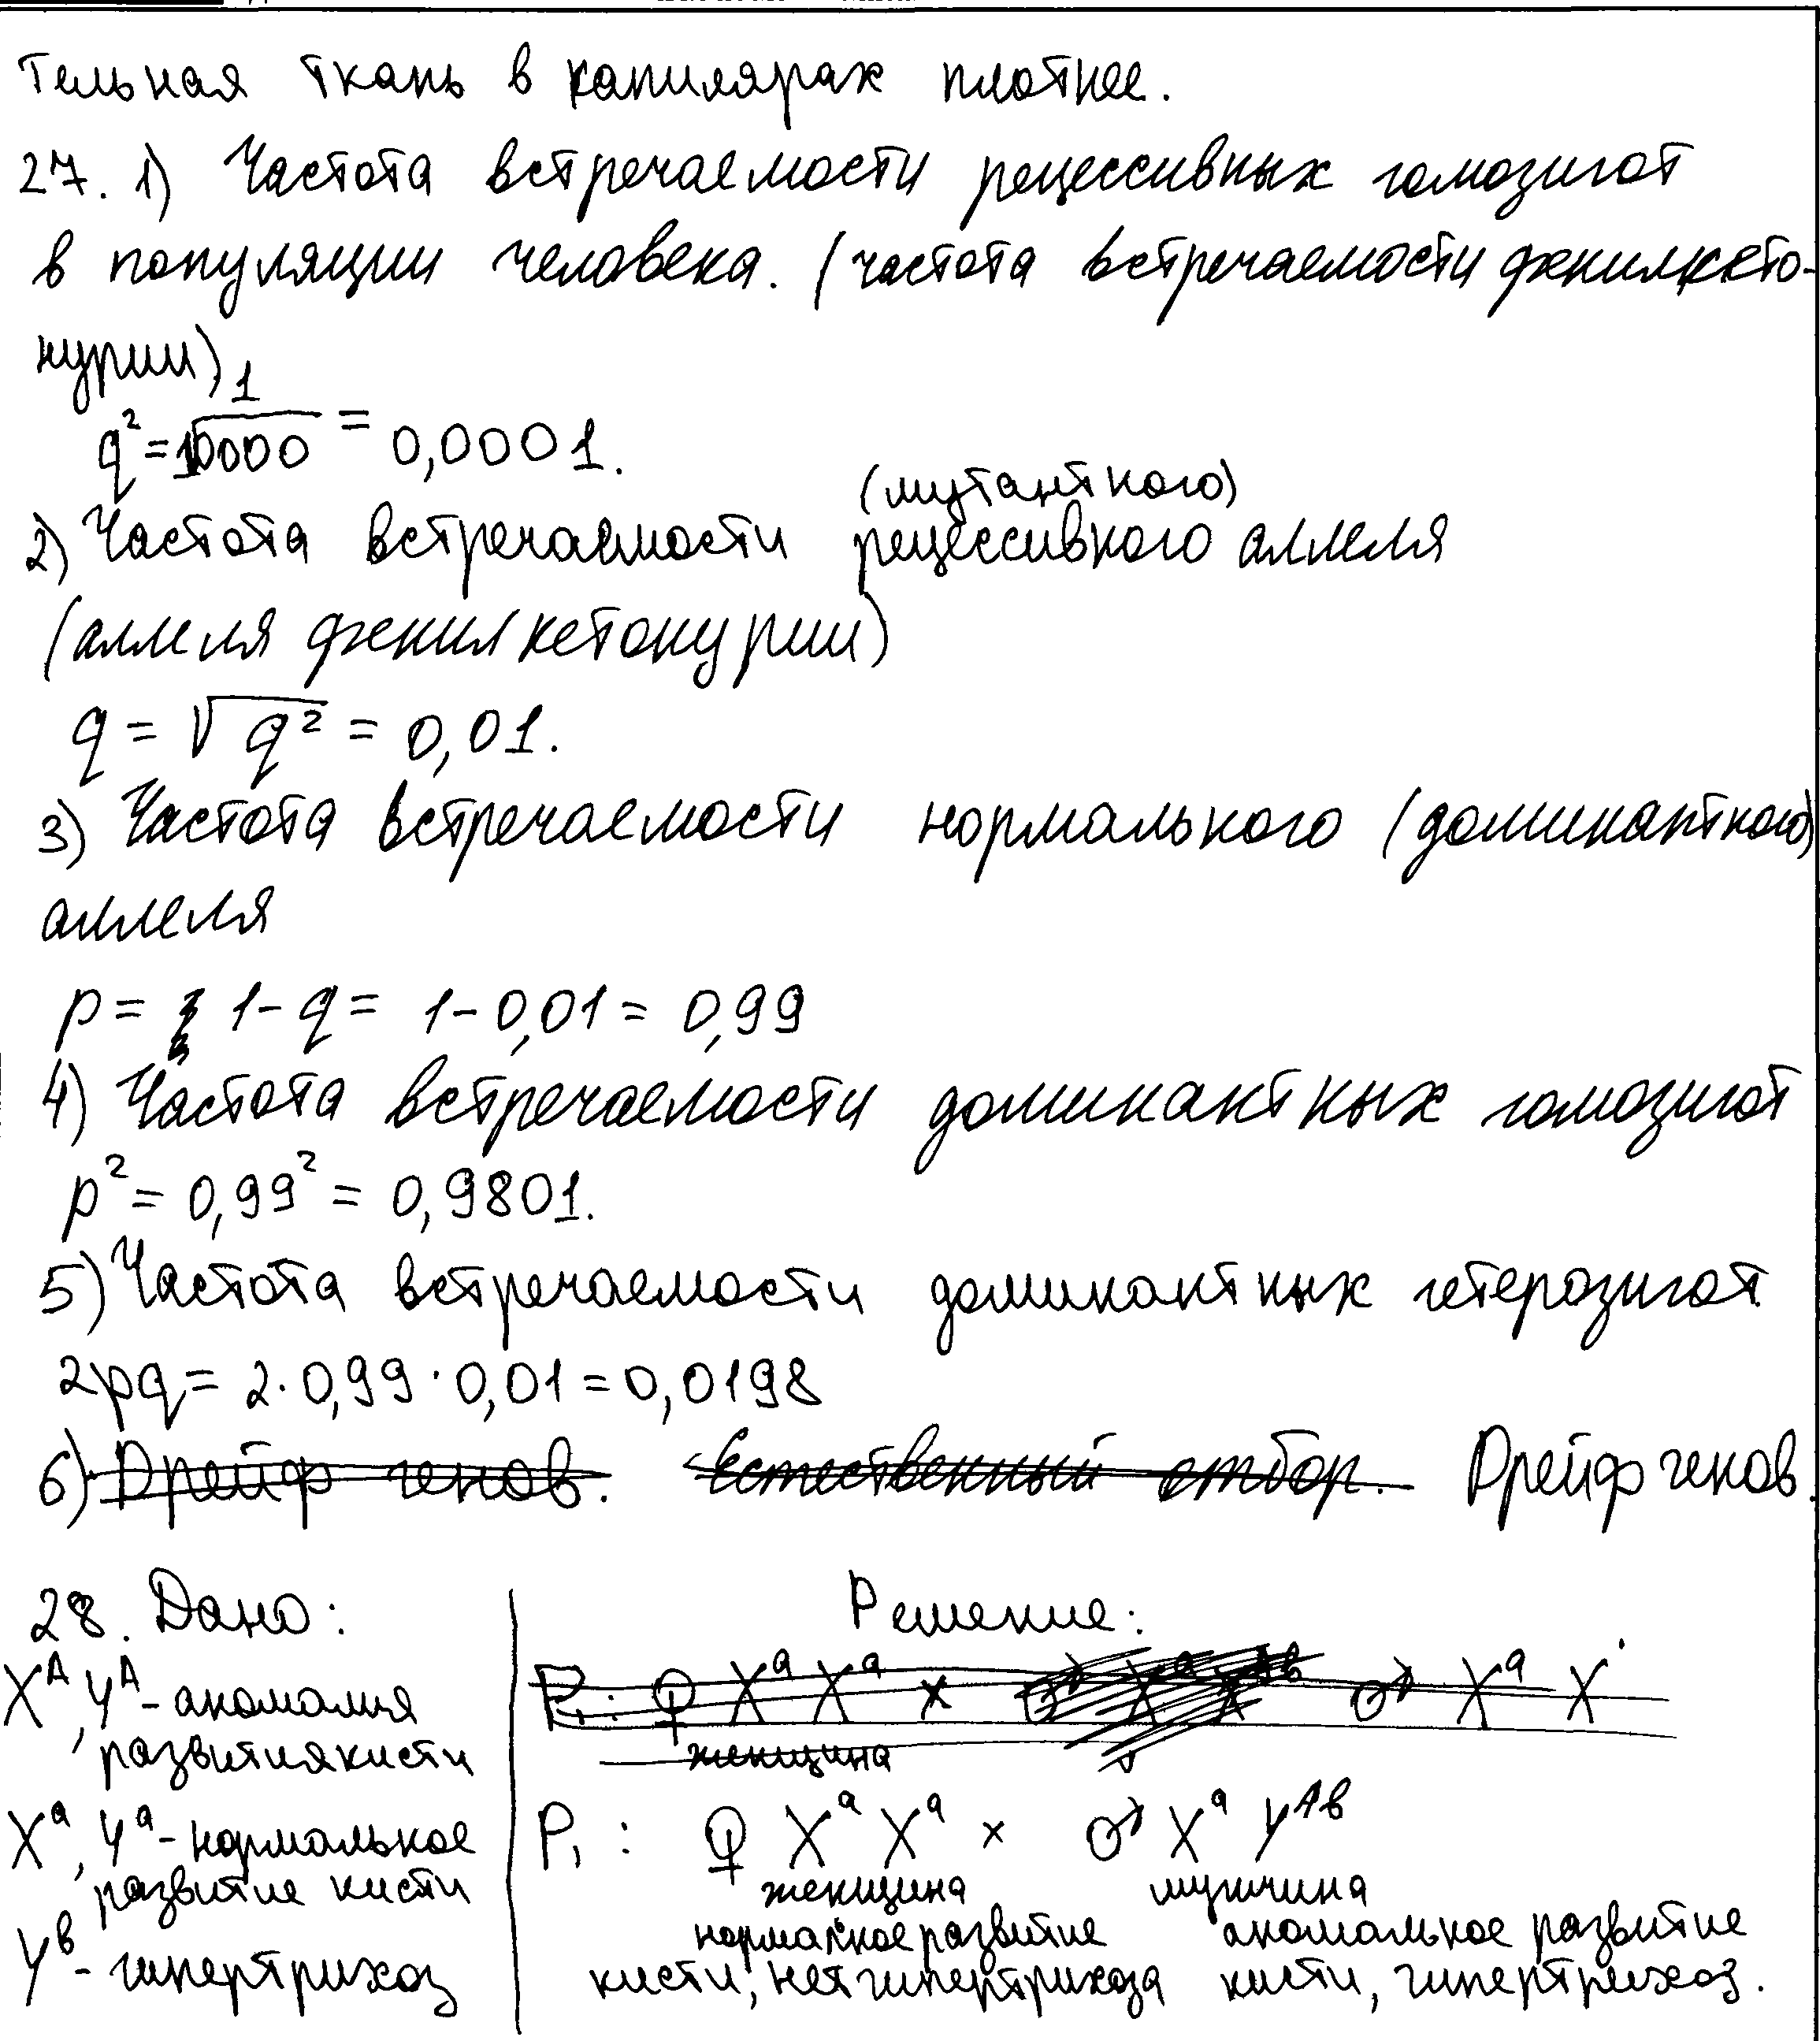 тельная ткань в капилярах плотнее.
27. 1) Частота встречаемости рецессивных гомозигот
в популяции человека. (частота встречаемости фенилкето-
нурии)
q² = 1/10000 = 0,0001.
(мутантного)
2) Частота встречаемости рецессивного аллеля
(аллеля фенилкетонурии)
q = √q² = 0,01.
3) Частота встречаемости нормального (доминантного)
аллеля
p = 1 - q = 1 - 0,01 = 0,99
4) Частота встречаемости доминантных гомозигот
p² = 0,99² = 0,9801.
5) Частота встречаемости доминантных гетерозигот
2pq = 2·0,99·0,01 = 0,0198
6) Дрейф генов. Естественный отбор. Дрейф генов.
28. Дано:
Xᴬ, Yᴬ - аномалия
развития кисти
Xᵃ, Yᵃ - нормальное
развитие кисти
Yᵇ - гипертрихоз
Решение:
P₁: ♀ Xᵃ Xᵃ × ♂ Xᵃ X
женщина
P₁: ♀ Xᵃ Xᵃ × ♂ Xᵃ Yᴬᵇ
женщина мужчина
нормальное развитие аномальное развитие
кисти, нет гипертрихоза кисти, гипертрихоз.